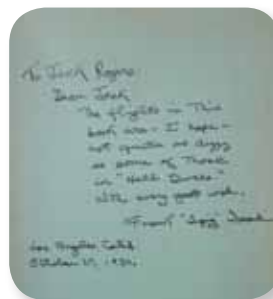 To Jack Rogers
Dear Jack
The flights in this
book are - I hope -
not quite as dizzy
as some of those
in "Hell's
With every good wish.
"Spig"
Los Angeles Calif.
October 1930.